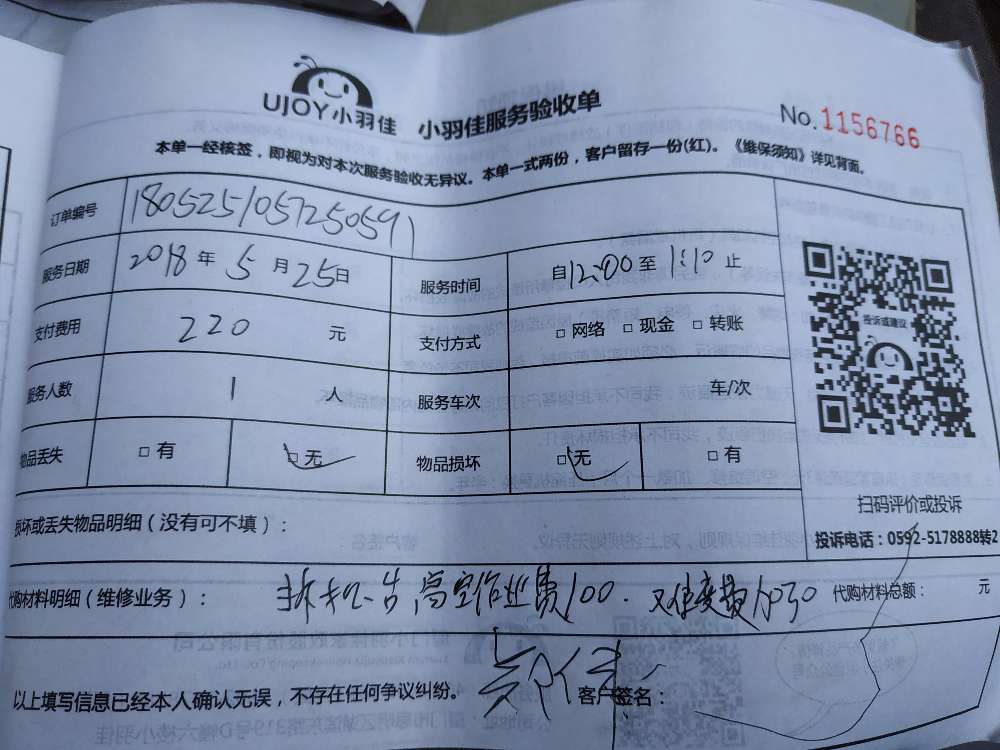 UJOY小羽佳 小羽佳服务验收单
No.1156766
本单一经核签，即视为对本次服务验收无异议。本单一式两份，客户留存一份(红)。《维保须知》详见背面。
订单编号 1805251057250591
服务日期 2018年5月25日 服务时间 自12:00至1:10止
支付费用 220 元 支付方式 □网络 □现金 □转账
服务人数 1 人 服务车次 车/次
物品丢失 □有 □无 物品损坏 □无 □有
投诉或建议
扫码评价或投诉
投诉电话：0592-5178888转2
损坏或丢失物品明细（没有可不填）：
代购材料明细（维修业务）： 拆机一台，高空作业费100. 难度费加30 代购材料总额： 元
以上填写信息已经本人确认无误，不存在任何争议纠纷。 客户签名：